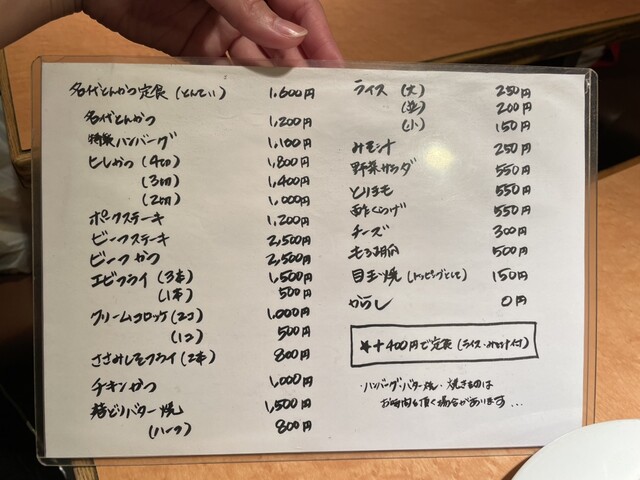 名代とんかつ定食 (とんてい) 1,600円
名代とんかつ 1,200円
特製ハンバーグ 1,100円
ヒレかつ (4切) 1,800円
(3切) 1,400円
(2切) 1,000円
ポークステーキ 1,200円
ビーフステーキ 2,500円
ビーフかつ 2,500円
エビフライ (3本) 1,500円
(1本) 500円
クリームコロッケ (2コ) 1,000円
(1コ) 500円
ささみしそフライ (2本) 800円
チキンかつ 1,000円
若どりバター焼 1,500円
(ハーフ) 800円
ライス (大) 250円
(並) 200円
(小) 150円
みそ汁 250円
野菜サラダ 550円
とりもも 550円
酢くらげ 550円
チーズ 300円
もろ胡 500円
目玉焼 (トッピングとして) 150円
からし 0円
*+400円で定食 (ライス・みそ汁付)
・ハンバーグ・バター焼・焼きものは
お時間を頂く場合があります...